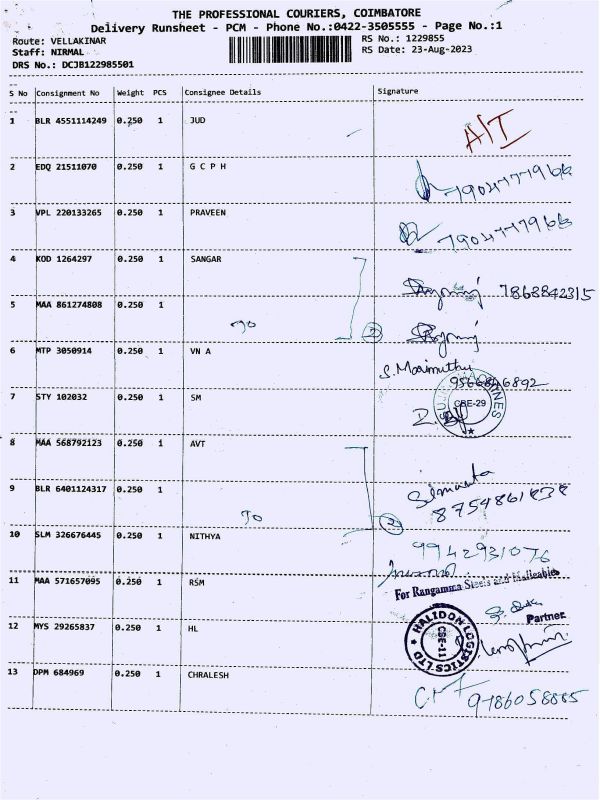 THE PROFESSIONAL COURIERS, COIMBATORE
Delivery Runsheet - PCM - Phone No.:0422-3505555 - Page No.:1
Route: VELLAKINAR
RS No.: 1229855
Staff: NIRMAL
RS Date: 23-Aug-2023
DRS No.: DCJB122985501
S No Consignment No Weight PCS Consignee Details Signature
1 BLR 4551114249 0.250 1 JUD A/I
2 EDQ 21511070 0.250 1 G C P H
3 VPL 220133265 0.250 1 PRAVEEN
4 KOD 1264297 0.250 1 SANGAR 7868842315
5 MAA 861274808 0.250 1
TO 2
6 MTP 3050914 0.250 1 VN A S. Marimuthu
9566846892
7 STY 102032 0.250 1 SM CBE-29
8 MAA 568792123 0.250 1 AVT
9 BLR 6401124317 0.250 1
TO 2
10 SLM 326676445 0.250 1 NITHYA 9942931076
11 MAA 571657095 0.250 1 RSM For Rangamma Steels and Malleables
Partner
12 MYS 29265837 0.250 1 HL HALIDON LOGISTICS LTD CBE-11
13 DPM 684969 0.250 1 CHRALESH 9786058885